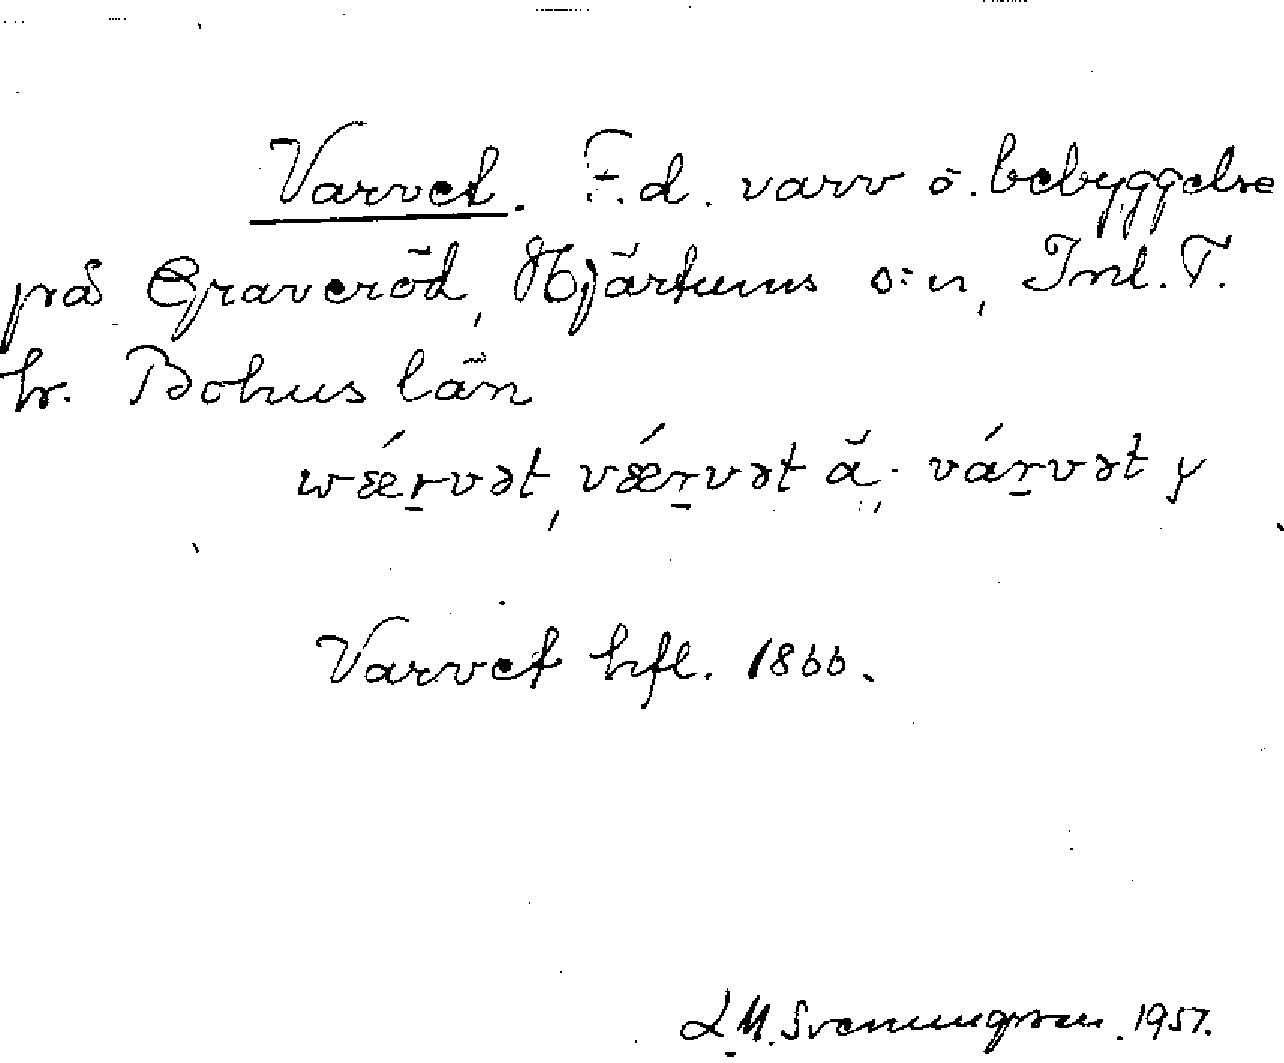 Varvet. F.d. varv o. bebyggelse
på Graveröd, Hjärtums s:n, Inl. T.
hr. Bohus län
wǽr̠vət, vǽr̠vət ä; vár̠vət y
Varvet hfl. 1866.
L M. Svenungsson. 1957.